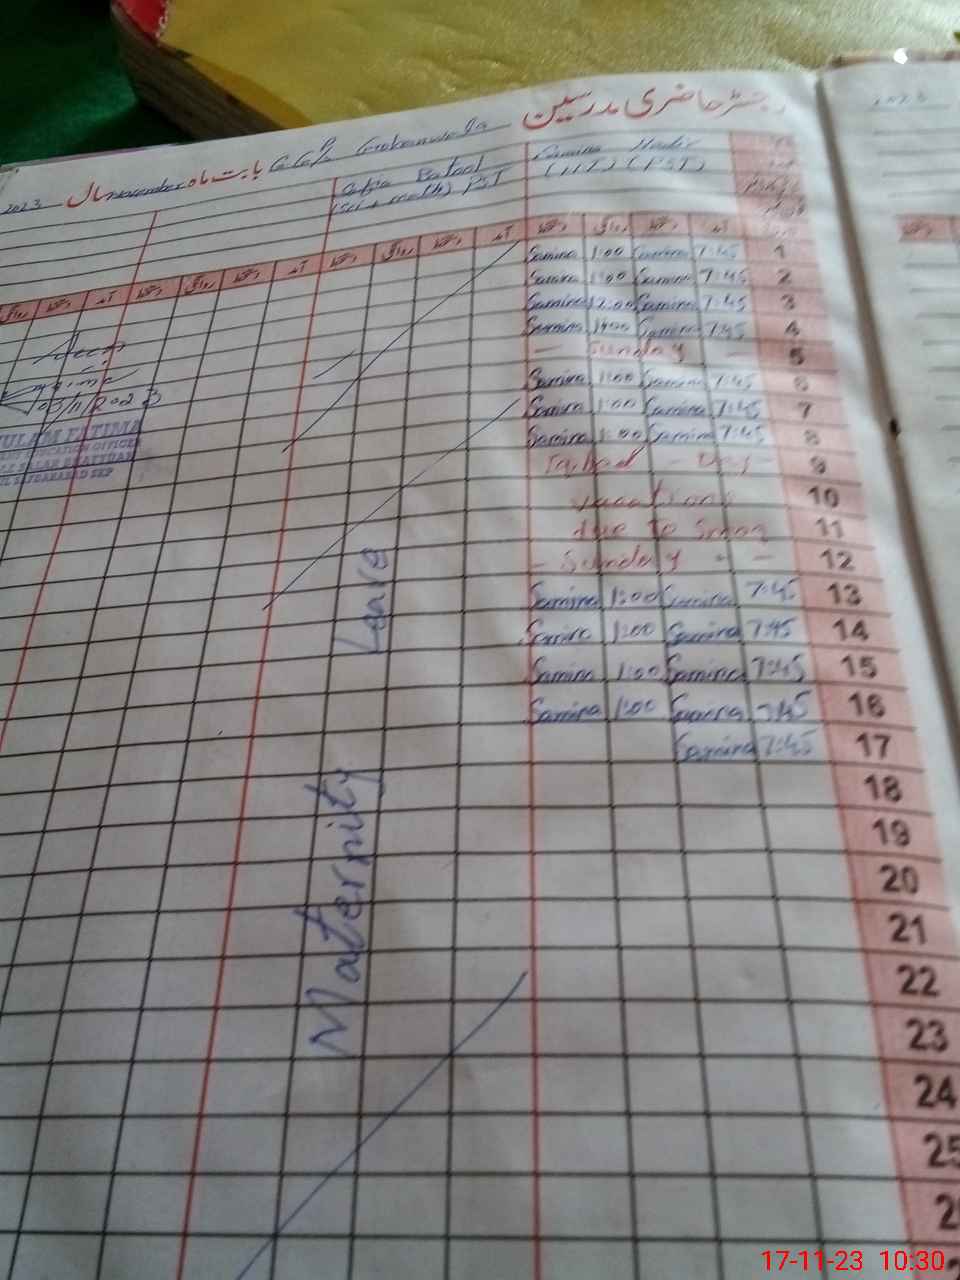 رجسٹر حاضری مدرسین
بابت ماہ November سال 2023
Samina Nadir
(PST)
Batool
(Sci + math) PST
آمد دستخط روانگی دستخط آمد دستخط روانگی دستخط آمد دستخط روانگی
1 7:45 Samina 1:00 Samina
2 7:45 Samina 1:00 Samina
3 7:45 Samina 12:00 Samina
4 7:45 Samina 1:00 Samina
5 - Sunday -
6 7:45 Samina 1:00 Samina
7 7:45 Samina 1:00 Samina
8 7:45 Samina 1:00 Samina
9 Iqbal - Day -
10 vacations
11 due to Smog
12 - Sunday - -
13 7:45 Samina 1:00 Samina
14 7:45 Samina 1:00 Samina
15 7:45 Samina 1:00 Samina
16 7:45 Samina 1:00 Samina
17 7:45 Samina
18
19
20
21
22
23
24
25
Maternity Leave
03/11/2023
ULAM FATIMA
EDUCATION OFFICER
17-11-23 10:30